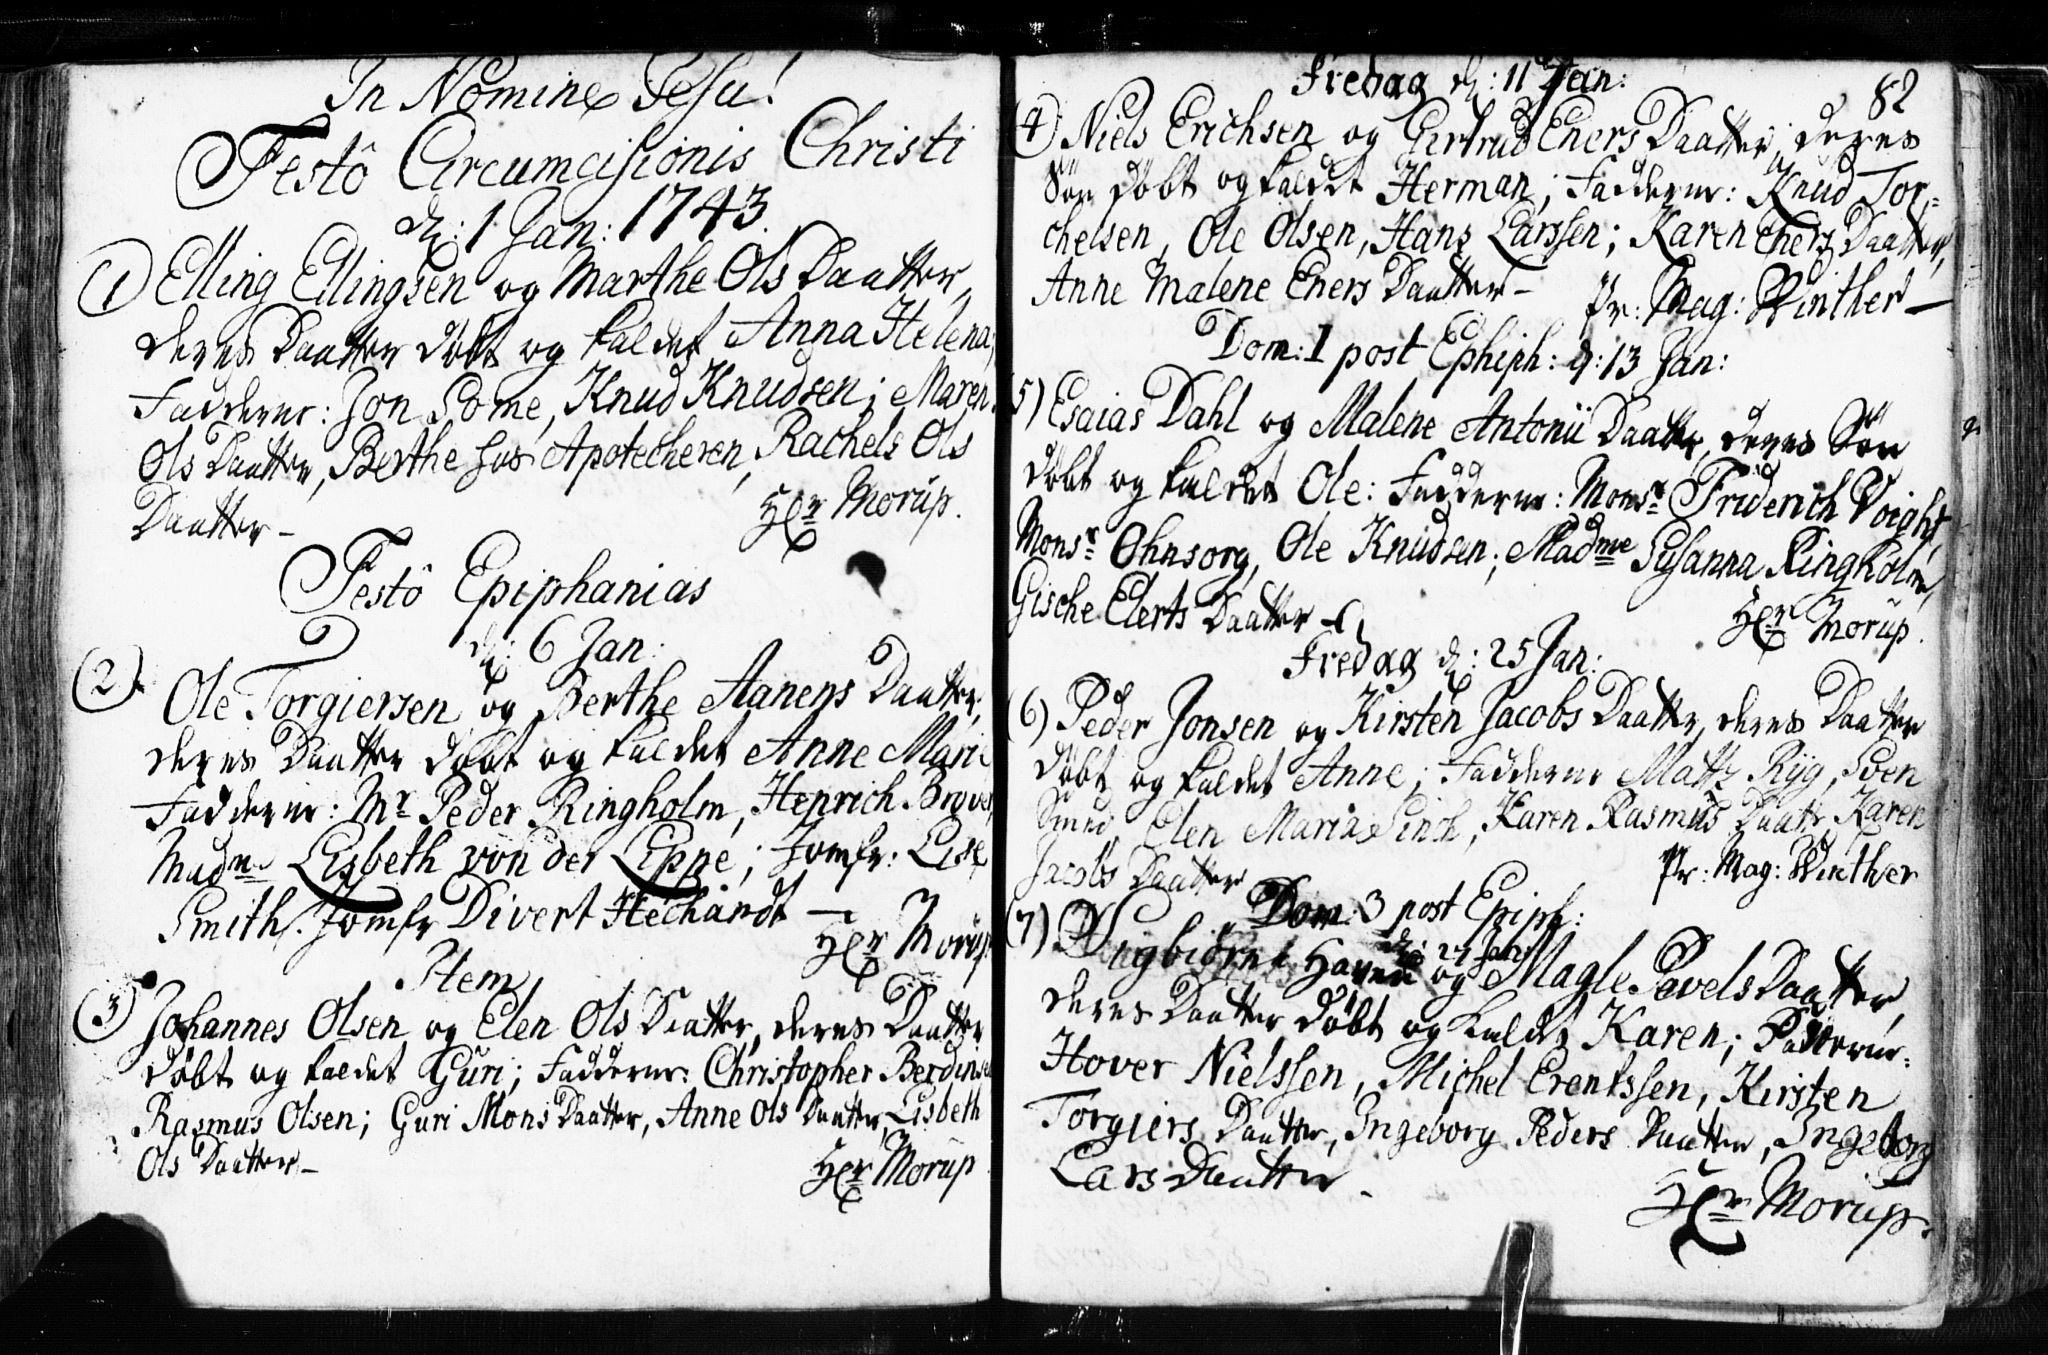 In Nomine Jesu!
Festô Circumcisionis Christi
d: 1 Jan: 1743.
1) Elling Ellingsen og Marthe Ols Daatter,
deres Daatter døbt og kaldet Anna Helena;
Fadderne: Jon Lome, Knud Knudsen; Maren
Ols Daatter, Berthe hos Apotecheren, Rachels Ols
Daatter –
Hr Morup.
Festô Epiphanias
d: 6 Jan:
2) Ole Torgiersen og Berthe Aanens Daatter,
deres Daatter døbt og kaldet Anne Marie
Fadderne: Mr Peder Ringholm, Henrich Brover
Madme Lisbeth von der Lippe; Jomfr: Lise
Smith. Jomfr Divert Hechandt –
Hr Morup
Item
3) Johannes Olsen og Elen Ols Daatter, deres Daatter
døbt og kaldet Guri; Fadderne: Christopher Berdinsen
Rasmus Olsen; Guri Mons Daatter, Anne Ols Daatter, Lisbeth
Ols Daatter –
Hr Morup
82
Fredag d: 11 Jan:
4) Niels Erichsen og Girtrud Eners Daatter, deres
Søn døbt og kaldet Herman; Fadderne: Knud Tor-
chelsen, Ole Olsen, Hans Larssen; Karen Eners Daatter,
Anne Malene Eners Daatter –
Pr: Mag: Winther –
Dom: 1 post Ephiph: d: 13 Jan:
5) Esaias Dahl og Malene Antonii Daatter, deres Søn
døbt og kaldet Ole: Fadderne: Monsr Friderich Voight,
Monsr Ohnsorg, Ole Knudsen; Madme Susanna Ringholm,
Gische Elerts Daatter –
Hr Morup.
Fredag d: 25 Jan:
6) Peder Jonsen og Kirsten Jacobs Daatter, deres Daatter
døbt og kaldet Anne; Fadderne Matts Ryg, Sven
Smed, Elen Maria Finch, Karen Rasmus Daatr Karen
Jacobs Daatter
Pr: Mag: Winther
Dom: 3 post Epiph:
d: 27 Jan:
7) Sigbiørn Haven og Magle Povels Daatter,
deres Daatter døbt og kaldet Karen; Fadderne:
Hover Nielssen, Michel Erentssen, Kirsten
Torgiers Daatter, Ingeborg Peders Daatter, Ingeborg
Lars Daatter –
Hr Morup.